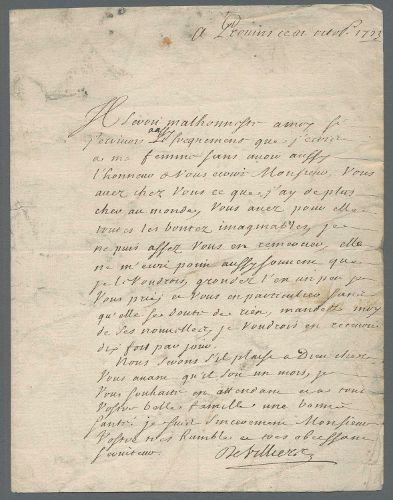 A Provins ce 21 octobr. 1723
Il seroit malhonneste a moy si
j'ecrivois aussy frequement que j'ecris
a ma femme sans avoir aussy
l'honneur de vous ecrire Monsieur, Vous
avez chez vous ce que j'ay de plus
cher au monde, Vous avez pour elle
toutes les bontez imaginables, je
ne puis assez vous en remercier, elle
ne m'ecrit point aussy souvent que
je le voudrois, grondez l'en un peu je
vous prie, et vous en particulier sans
qu'elle se doute de rien, mandez moy
de ses nouvelles, je voudrois en recevoir
dix fois par jour.
Nous serons s'il plaist a Dieu chez
vous avant qu'il soit un mois, je
vous souhaite en attendant et a toute
vostre belle famille une bonne
santé, je suis sincerement Monsieur
Vostre tres humble et tres obeissant
serviteur. DeVilliers